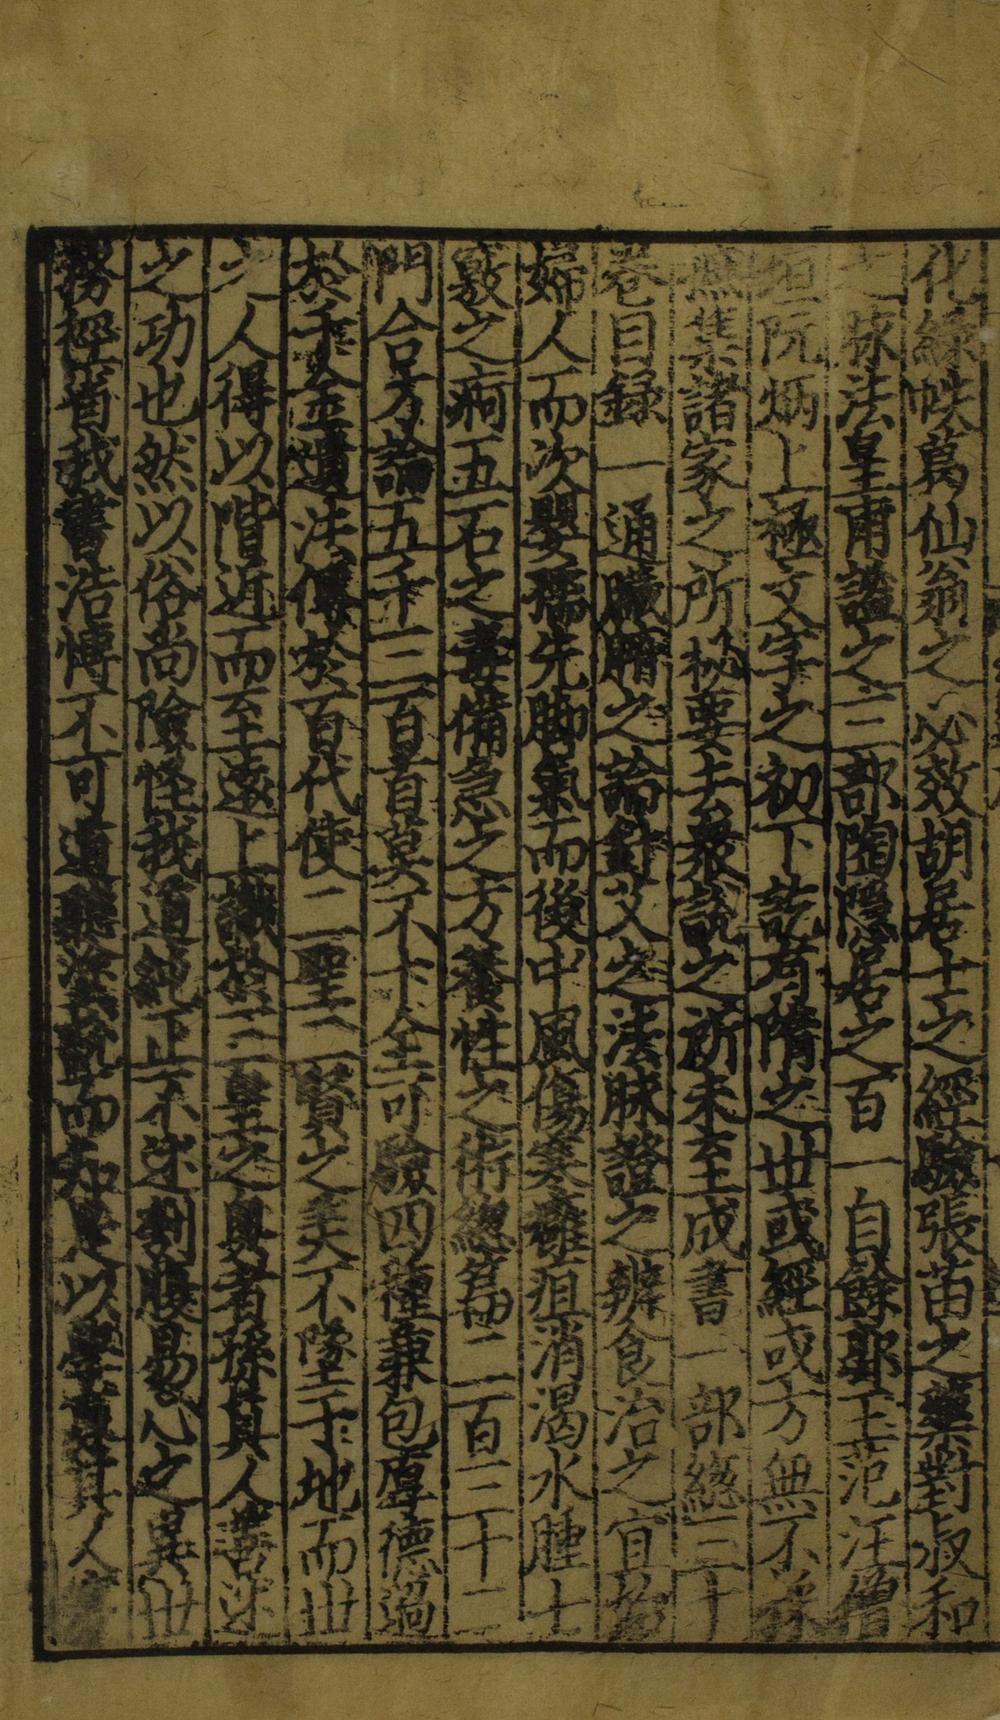 化綠帙葛仙翁之必效胡居士之經驗張苗之藥對叔和
之脉法皇甫謐之三部陶隱居之百一自餘郭玉范汪僧
垣阮炳上極文字之初下訖有隋之世或經或方無不採
摭集諸家之所秘要去衆說之所未至成書一部總三十
卷目録一通臟腑之論針艾之法脉證之辨食治之宜始
婦人而次嬰孺先脚氣而後中風傷寒癰疽消渴水腫七
竅之痾五石之毒備急之方養性之術總篇二百三十二
門合方論五千三百首莫不十全可驗四種兼包厚德過
於千金遺法傳於百代使二聖二賢之美不墜于地而世
之人得以階近而至遠上識於三皇之奧者孫真人善述
之功也然以俗尚險怪我道純正不述刳腹易心之異世
務徑省我書浩博不可道聽塗說而知是以學寡其人